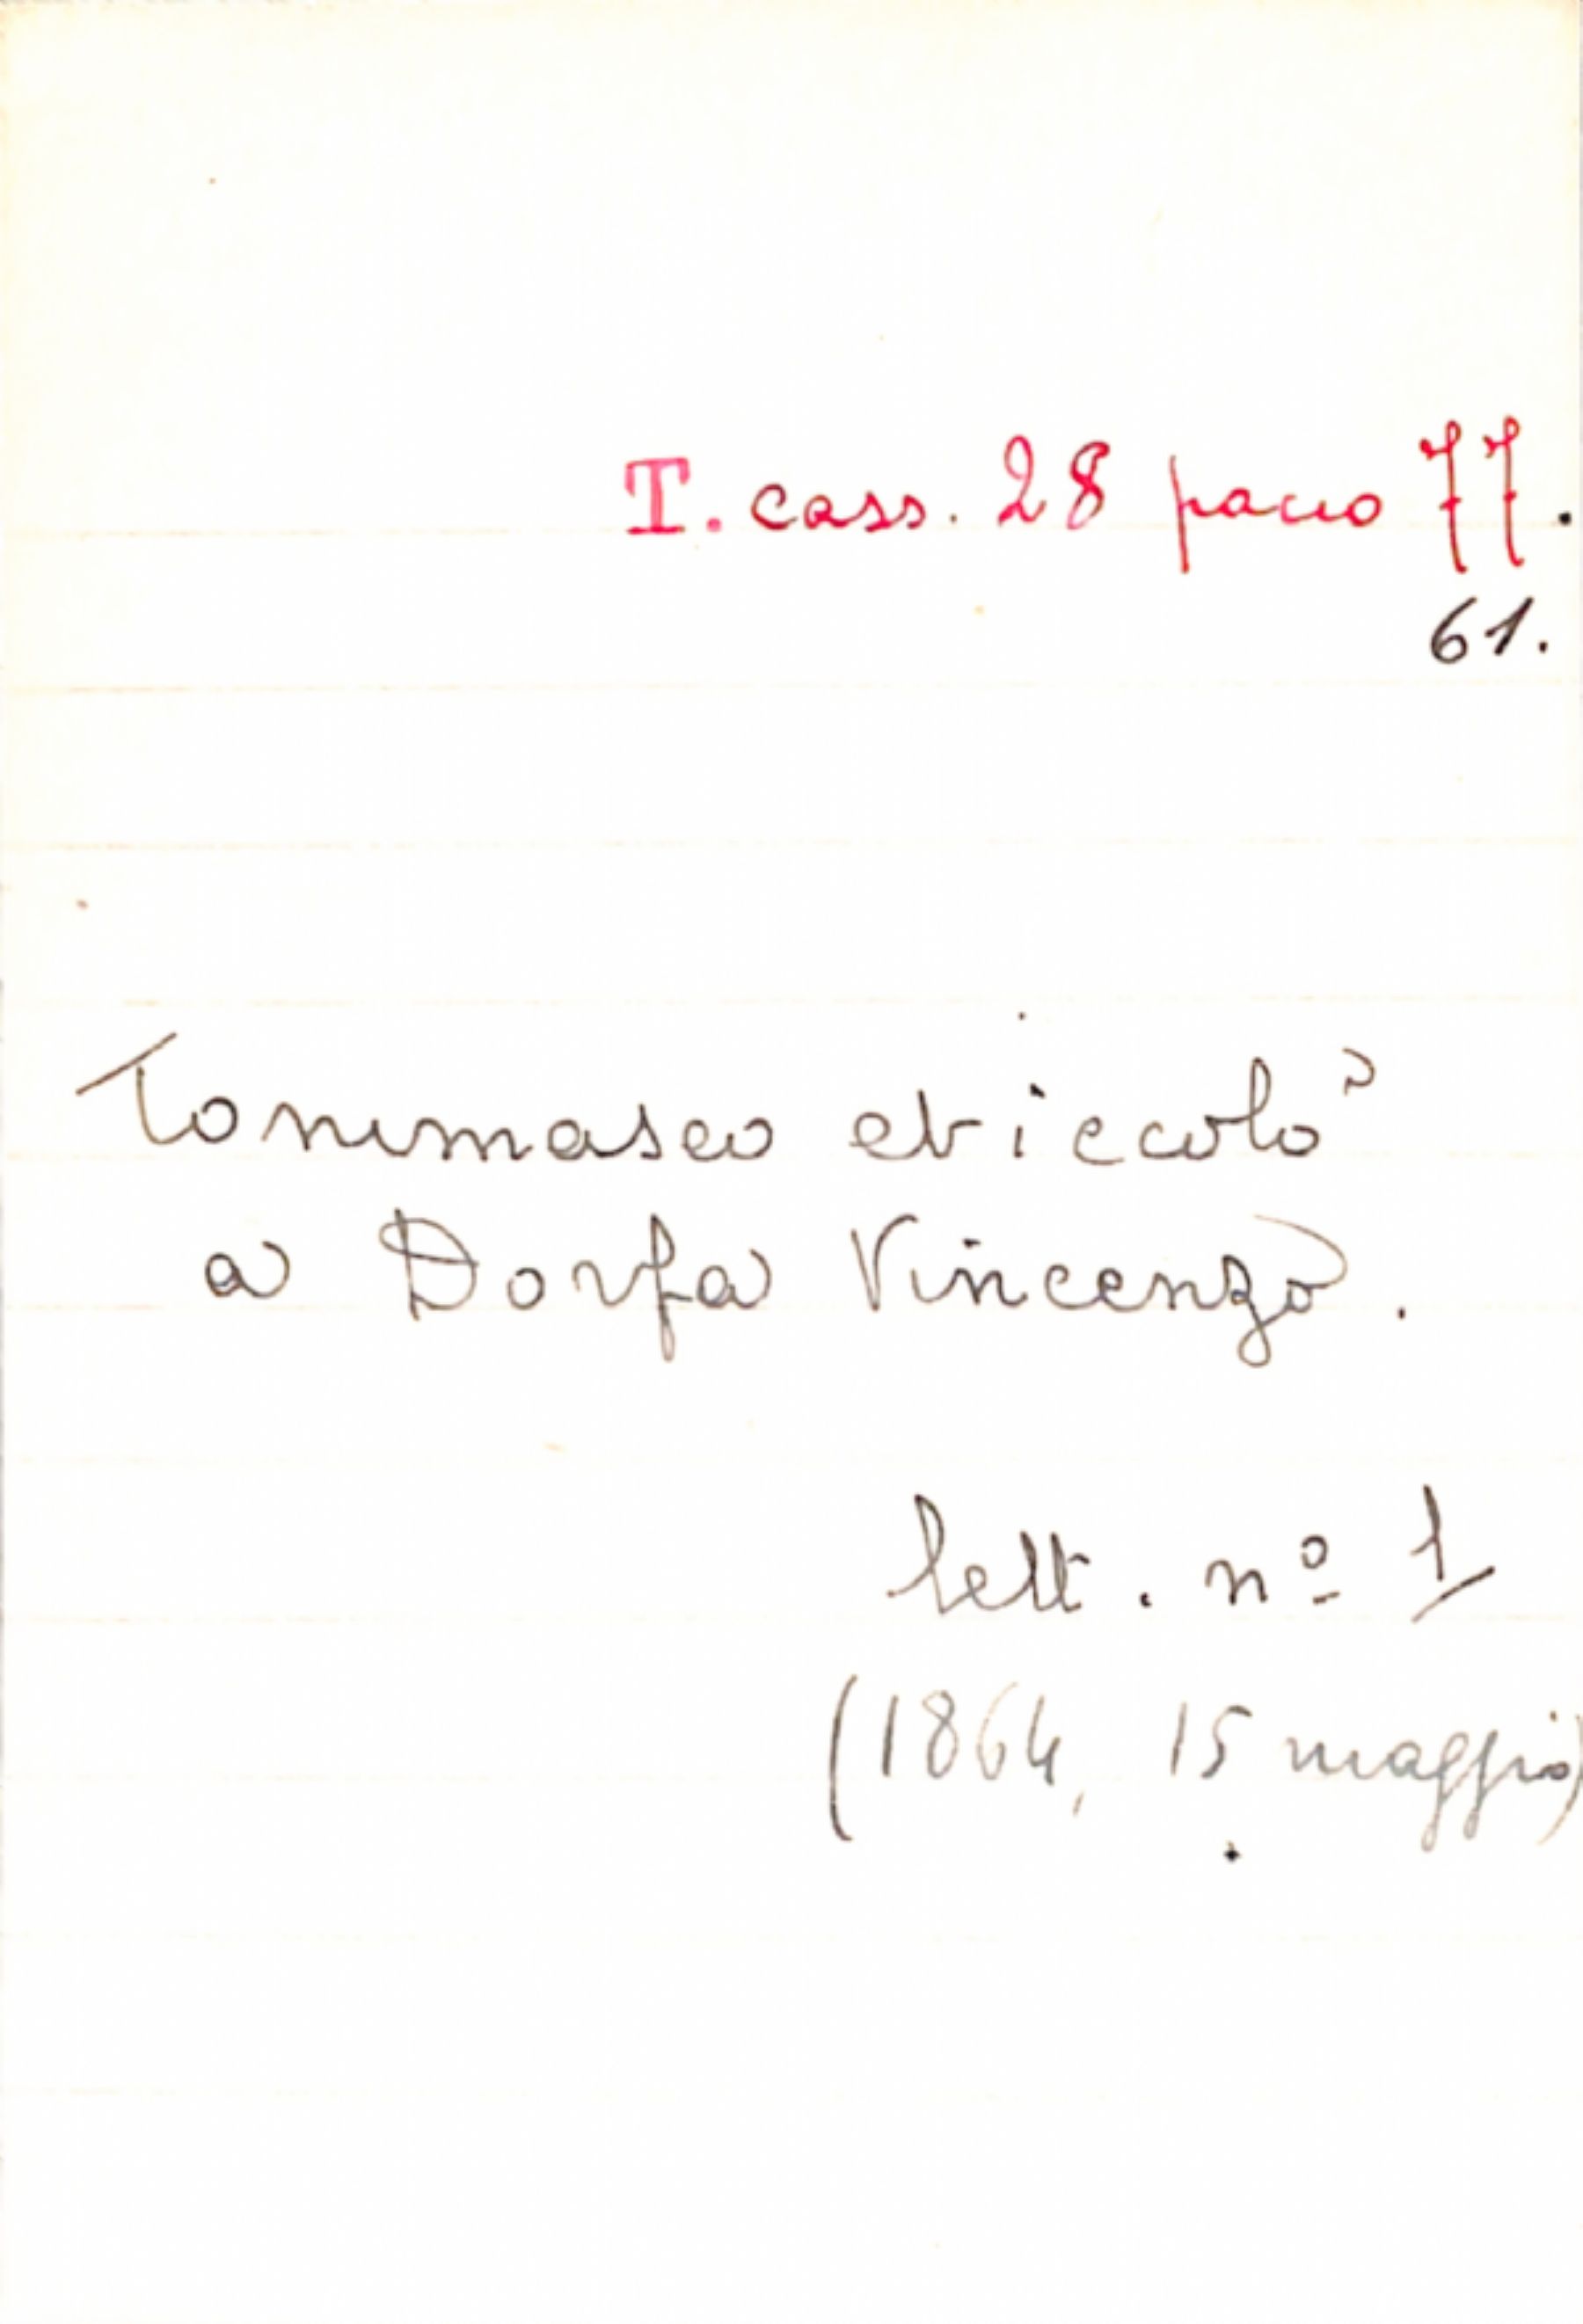 T. cass. 28 pacco 77.
61.
Tommaseo Niccolò
a Dorfa Vincenzo.
lett. nº 1
(1864, 15 maggio)